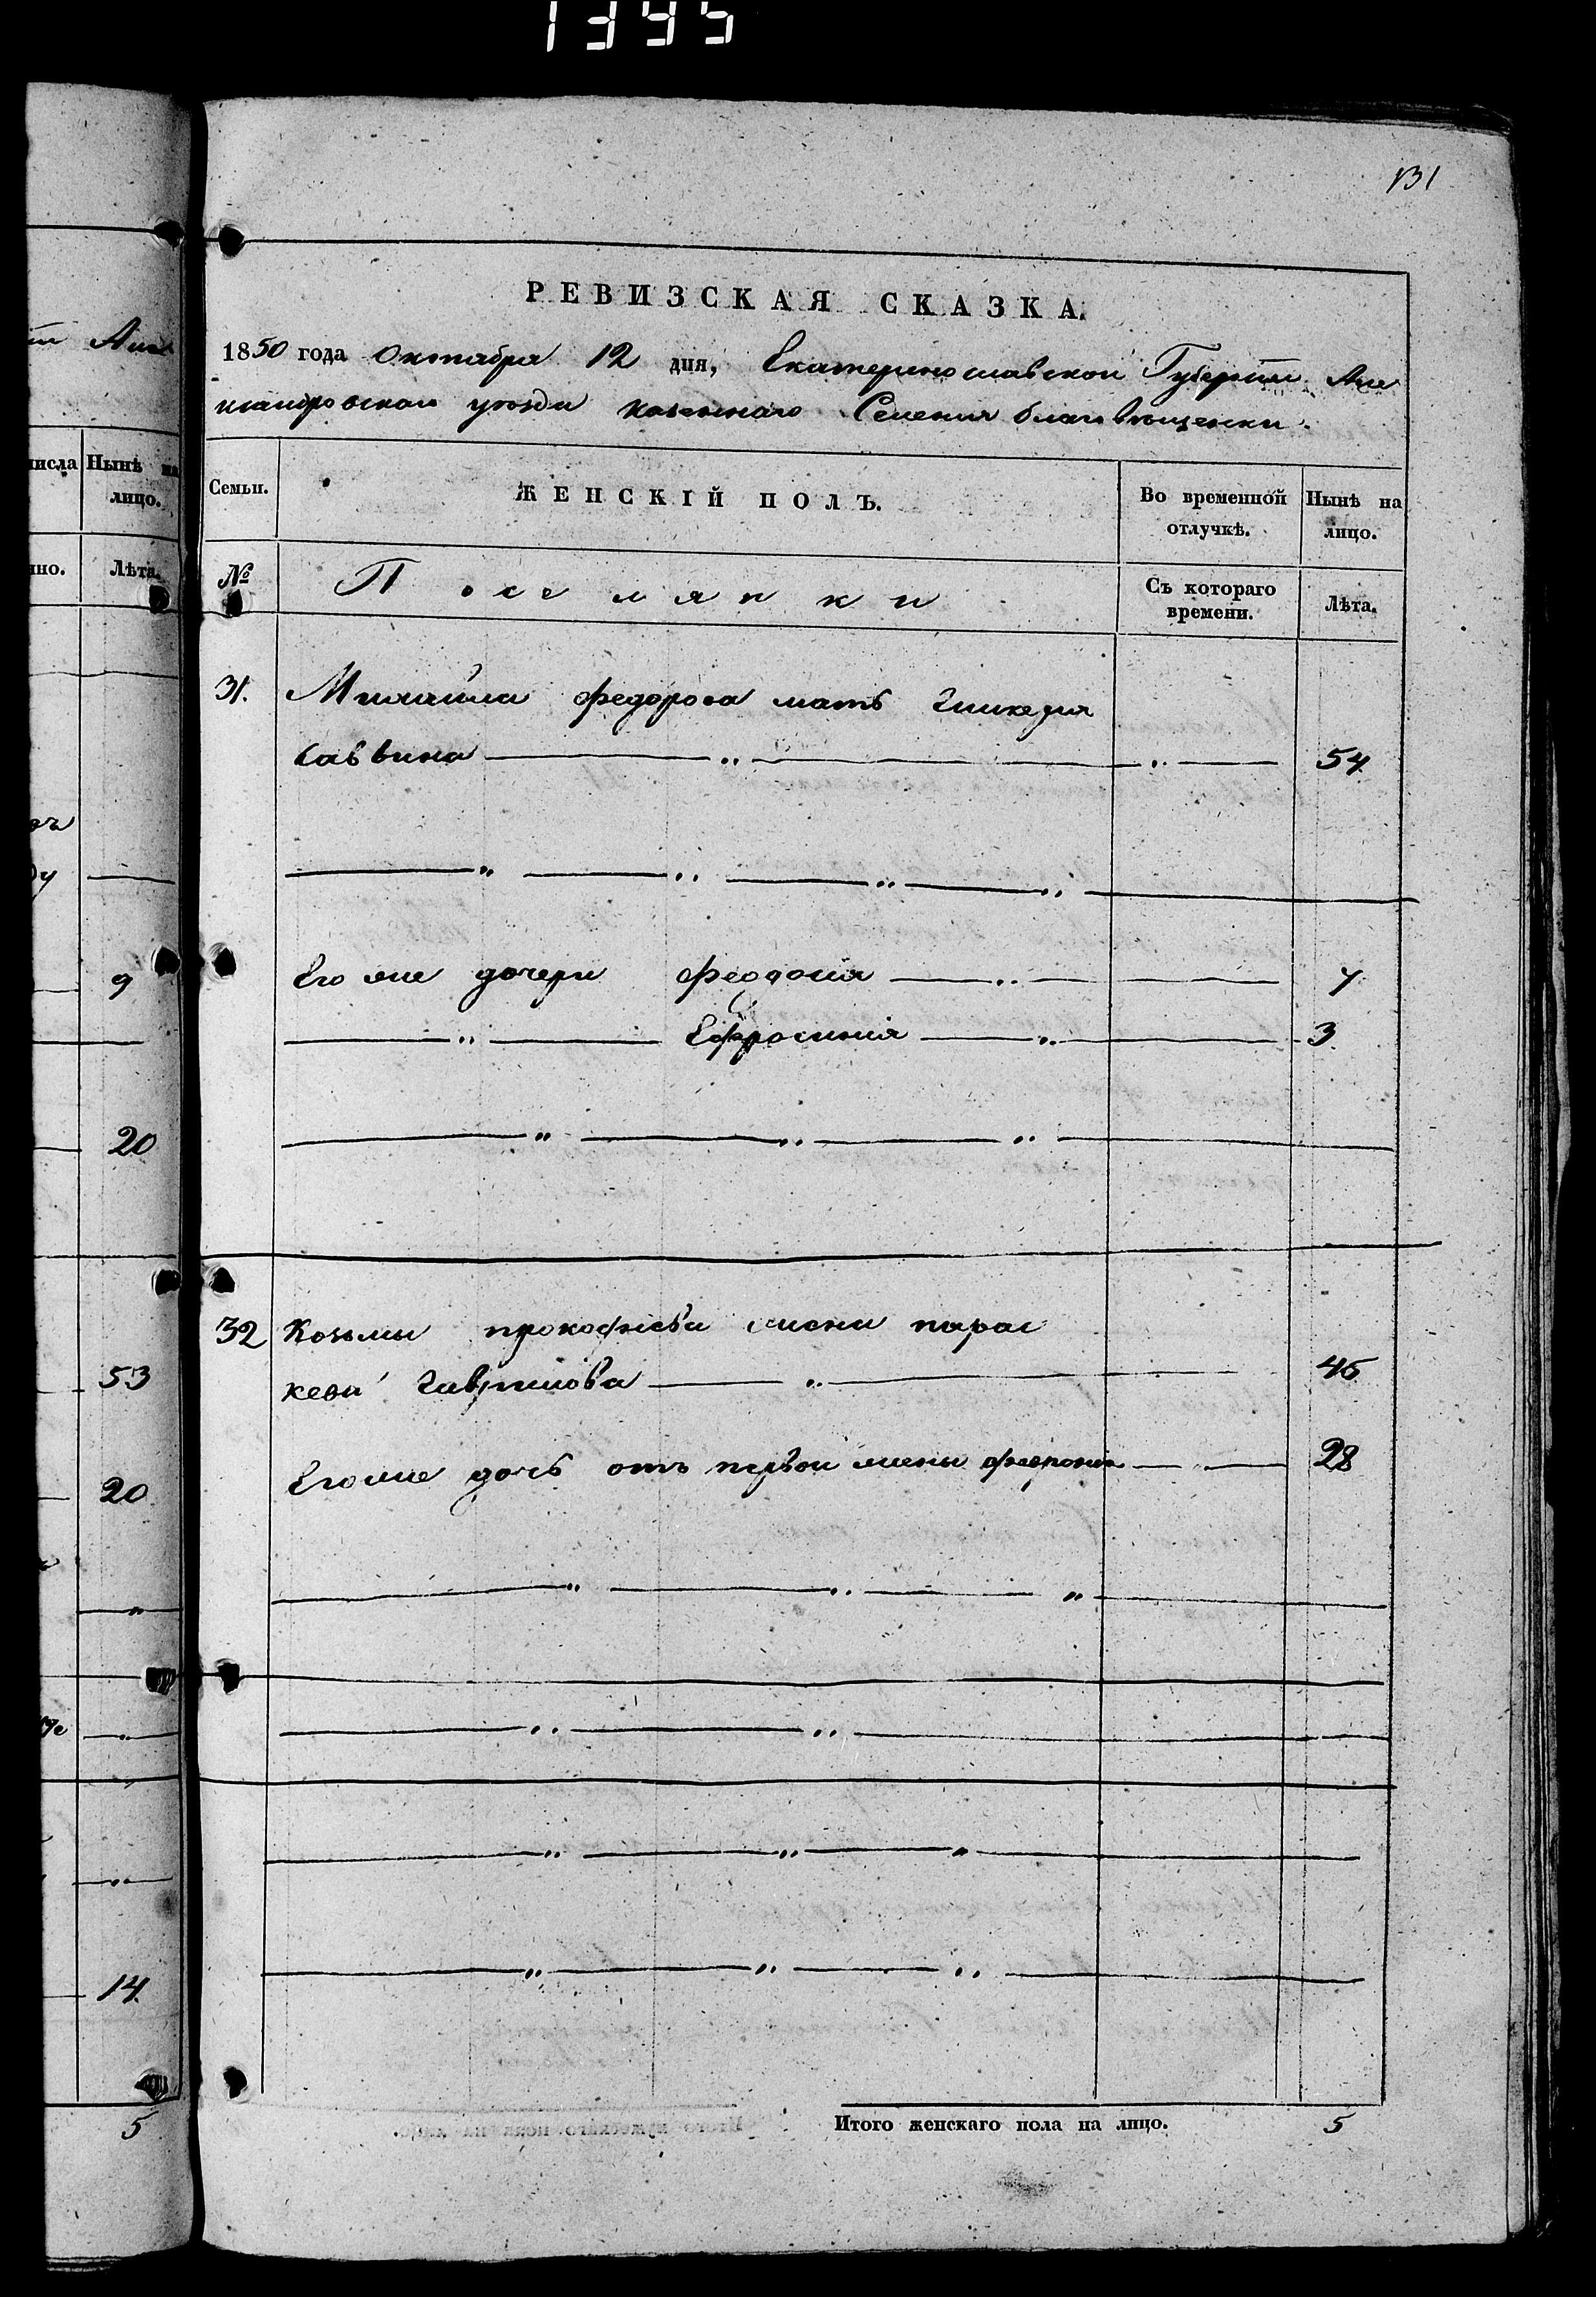 1395
131
РЕВИЗСКАЯ СКАЗКА.
1850 года Октября 12 дня, Екатеринославской Губернии Але
ксандровскаго уезда казеннаго Селения благовещенки.
числа
Нынѣ на лицо.
Лѣта.
9
20
53
20
14
5
Семьи.
ЖЕНСКІЙ ПОЛЪ.
Во временной отлучкѣ.
Нынѣ на лицо.
№
Поселянки
Съ котораго времени.
Лѣта.
31. Михайла федорова мать Гликерия
саввина 54
Его же дочери феодосия 7
Ефросиния 3
32 Козьмы прокофьева жена парас
кева Гаврилова 45
Его же дочь отъ первой жены феврония 28
Итого женскаго пола на лицо. 5